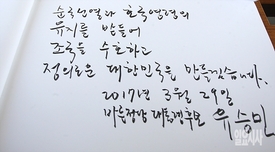 순국선열과 호국영령의
유지를 받들어
조국을 수호하고
정의로운 대한민국을 만들겠습니다.
2017년 3월 29일
바른정당 대통령후보 유승민